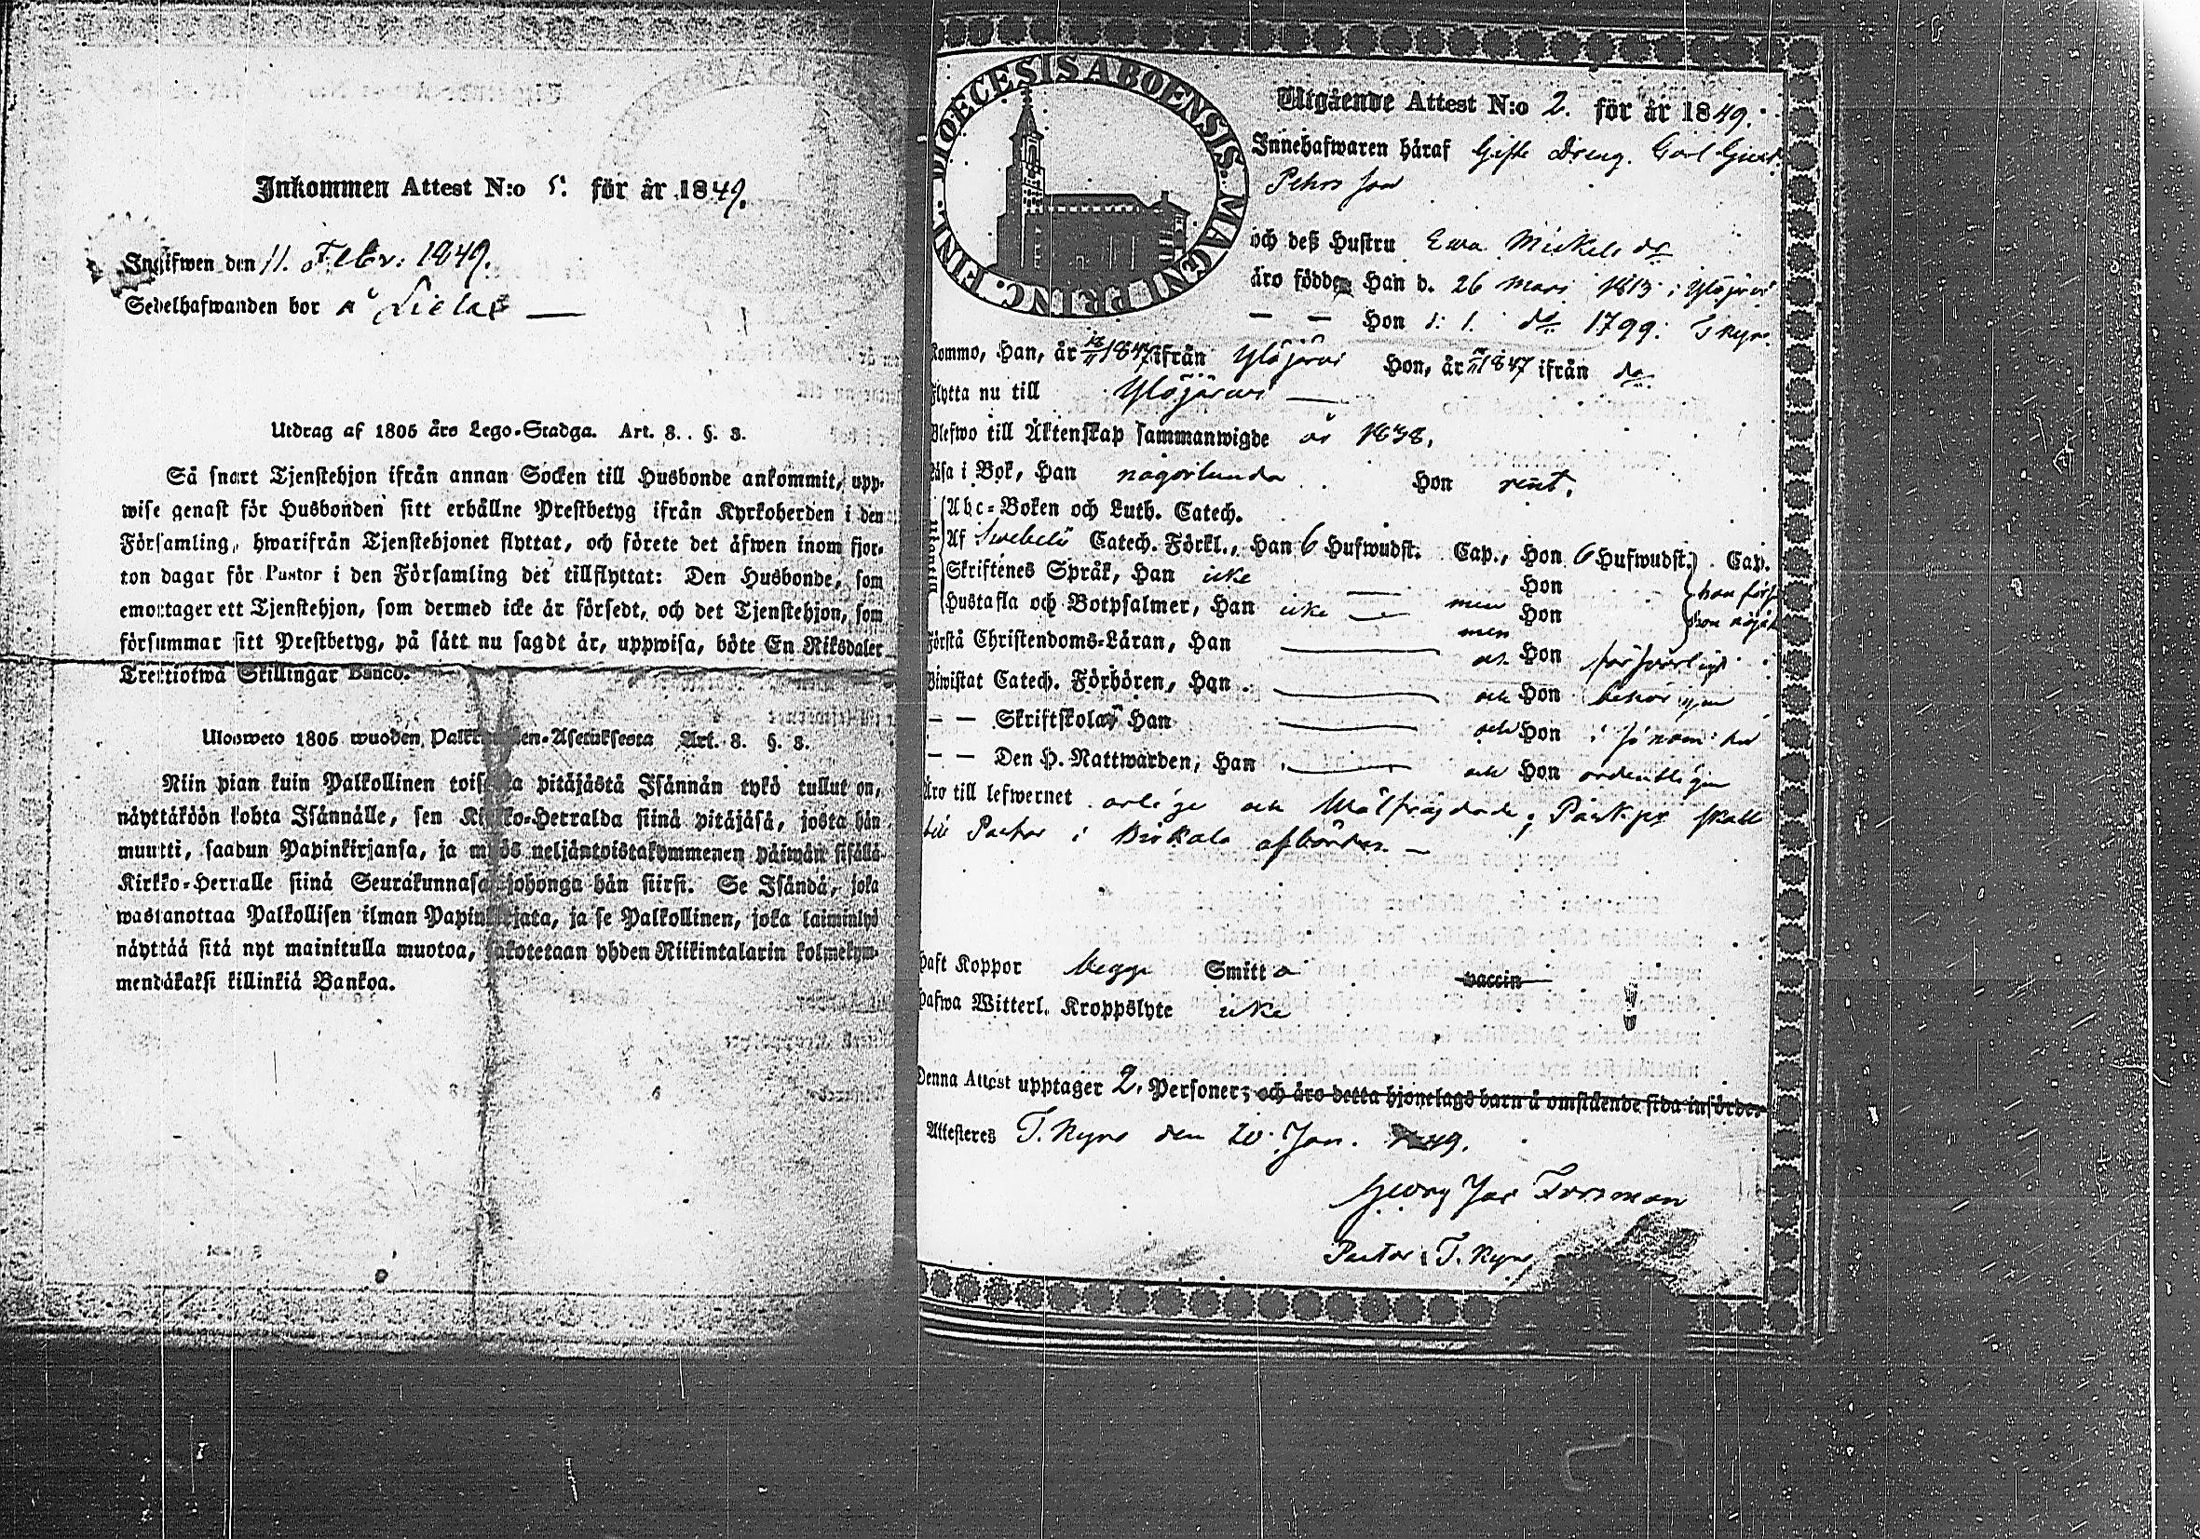 Inkommen Attest N:o 5. för år 1849.
Ingifwen den 11. Febr. 1849.
Sedelhafwanden bor å Lielax
Utdrag af 1805 års Lego-Stadga. Art. 8. §. 3.
Så snart Tjenstehjon ifrån annan Socken till Husbonde ankommit, upp-
wise genast för Husbonden sitt erhållne Prestbetyg ifrån Kyrkoherden i den
Församling, hwarifrån Tjenstehjonet flyttat, och förete det äfwen inom fjor-
ton dagar för Pastor i den Församling det tillflyttat: Den Husbonde, som
emottager ett Tjenstehjon, som dermed icke är försedt, och det Tjenstehjon, som
försummar sitt Prestbetyg, på sätt nu sagdt är, uppwisa, böte En Riksdaler
Trettiotwå Skillingar Banco.
Ulosweto 1805 wuoden Palkollisten-Asetuksesta Art. 8. §. 3.
Niin pian kuin Palkollinen toisesta pitäjästä Isännän tykö tullut on,
näyttäköön kohta Isännälle, sen Kirkko-Herralda siinä pitäjäsä, josta hän
muutti, saadun Papinkirjansa, ja myös neljäntoistakymmenen päiwän sisällä
Kirkko-Herralle siinä Seurakunnasa johonga hän siirsi. Se Isändä, joka
wastanottaa Palkollisen ilman Papinkirjata, ja se Palkollinen, joka laiminlyö
näyttää sitä nyt mainitulla muotoa, sakotetaan yhden Riikintalarin kolmekym-
mendäkaksi killinkiä Bankoa.
DIOECESIS ABOENSIS. MAGNI PRINC. FINL.
Utgående Attest N:o 2. för år 1849.
Innehafwaren häraf Gifte Dreng. Carl
Pehrsson
och deß Hustru Ewa Mickels dr
äro födde Han d. 26 Mars 1813 i Ylöjärvi
— — Hon d. 1. do 1799. T. Kyro.
Kommo, Han, år 1847 ifrån Ylöjärvi Hon, år 1847 ifrån do
Flytta nu till Ylöjärvi
Blefwo till Äktenskap sammanwigde år 1838.
Läsa i Bok, Han någorlunda Hon rent.
Abc-Boken och Luth. Catech.
Af Swebelii Catech. Förkl., Han 6 Hufwudst. Cap., Hon 6 Hufwudst. Cap.
Skriftenes Språk, Han icke Hon
Hustafla och Botpsalmer, Han icke men Hon
Förstå Christendoms-Läran, Han Hon försvarligt
Biwistat Catech. Förhören, Han och Hon behörigen
— — Skriftskolan Han och Hon
— — Den H. Nattwarden, Han och Hon ordentligen
Äro till lefwernet ärlige och wälfrägdade; skall
till Pastor i Birkala afbördas.
Haft Koppor begge Smitt a vaccin
Hafwa Witterl. Kroppslyte icke
Denna Attest upptager 2. Personer; och äro detta hjonelags barn å omstående sida införde
Attesteres T. Kyro den 20. Jan. 1849.
Georg Jac Forsman
Pastor i T. Kyro